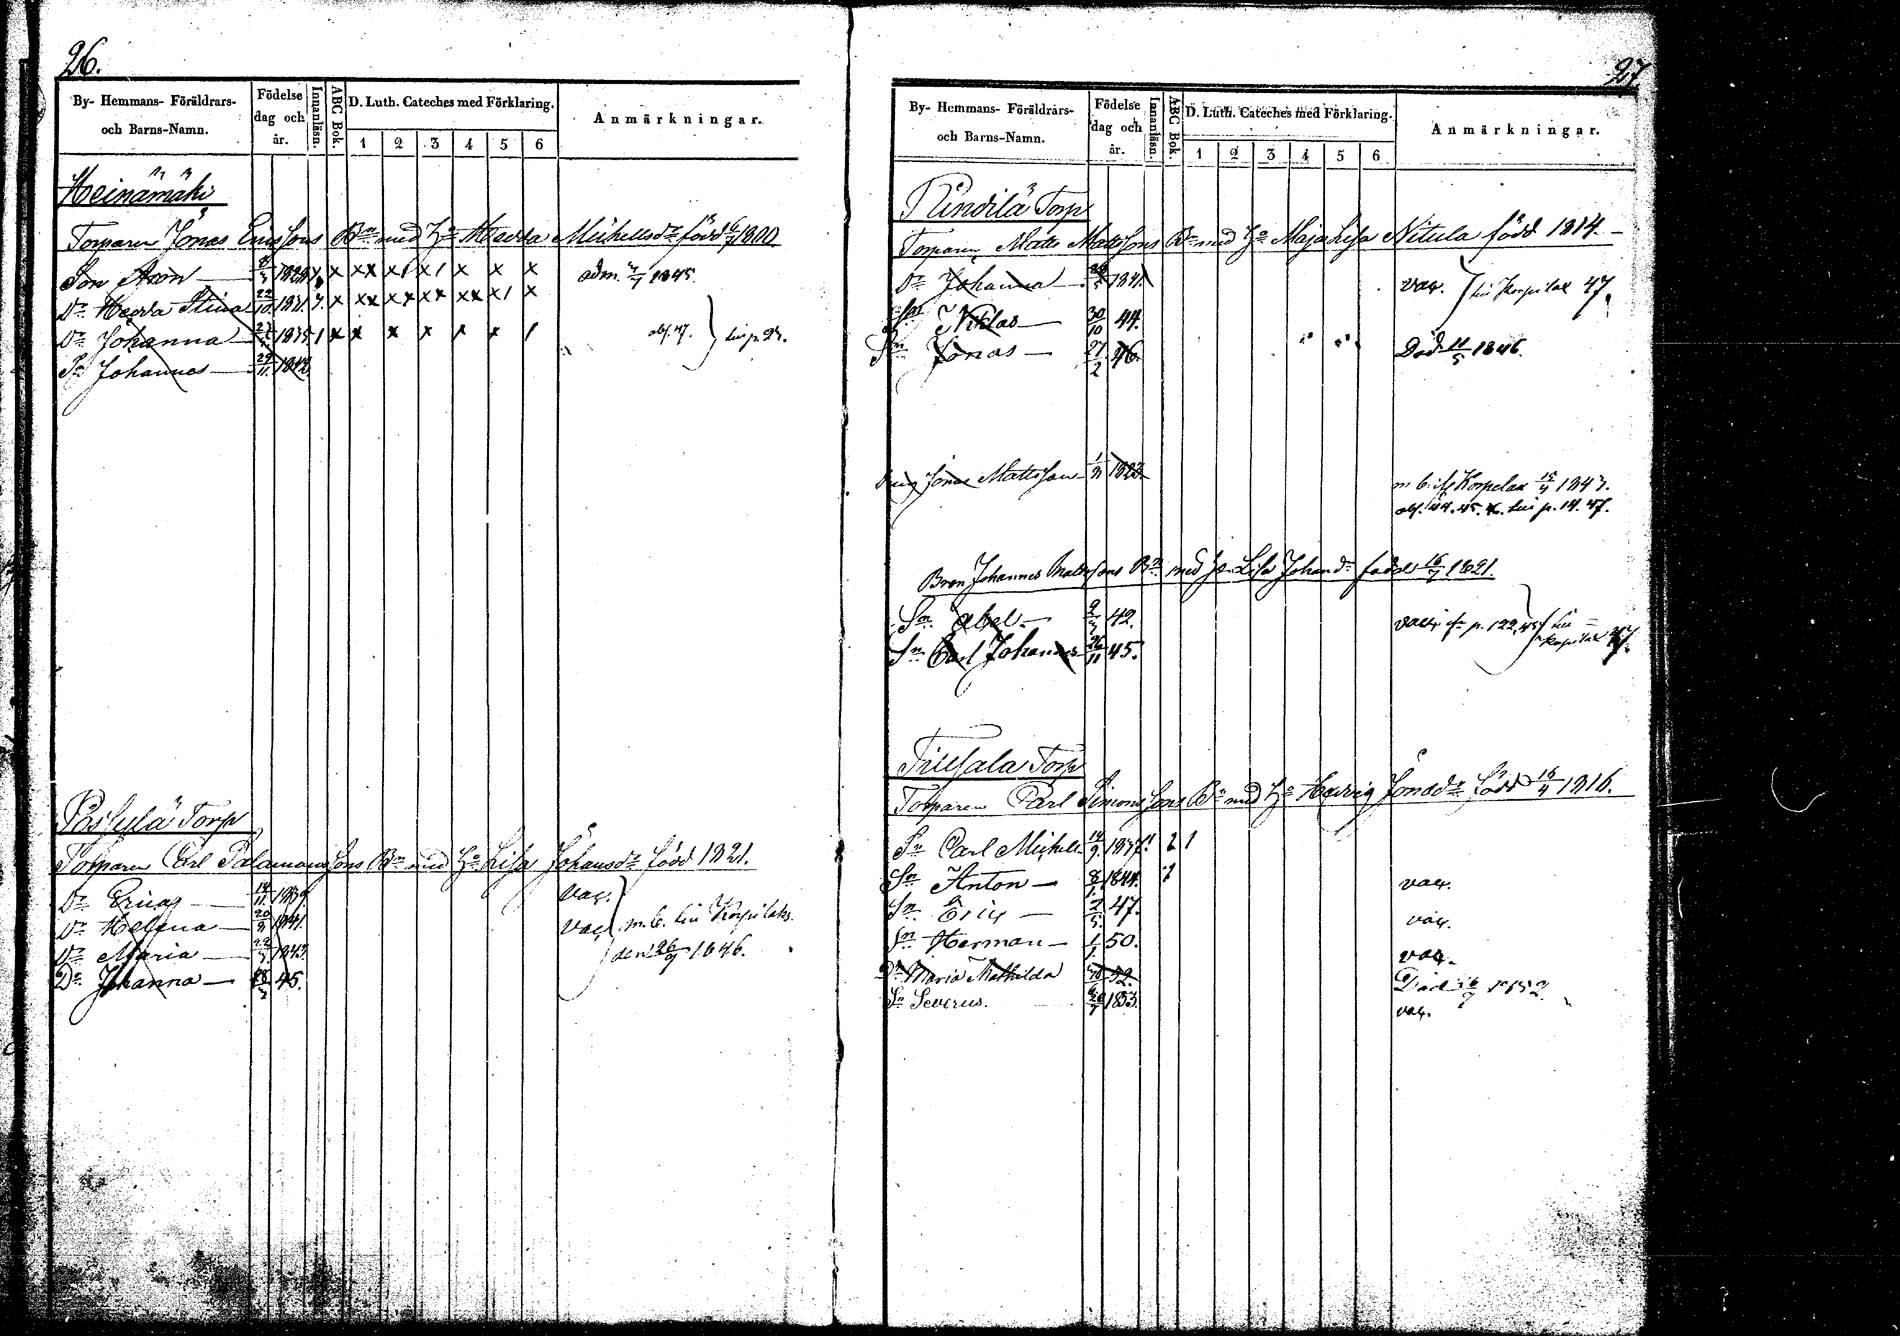 26.
By- Hemmans- Föräldrars- och Barns-Namn.
Födelse dag och år.
Innanläsn.
ABC Bok.
D. Luth. Cateches med Förklaring.
1 2 3 4 5 6
Anmärkningar.
Heinämäki
Torparen Jonas Ericssons Bn med Ho Hedda Michelsdr född 1800
Son Aron 1828 x xx x1 x1 x x x adm. 1845.
Dr Hedda Stina 22/10 1831 x xx xx xx xx x1 x
Dr Johanna 1835 1 x x x x x x 1
Sn Johannes 29/11 1842
Torp
Torparen Carl Salamonssons Bn med Ho Lisa Johansdr född 1821.
Dr Erica 14/11 1839 vac.
Dr Helena 1841. vac. m. b. till Korpilaks
Dr Maria 1843 den 26/7 1846.
Dr Johanna 45.
27
By- Hemmans- Föräldrars- och Barns-Namn.
Födelse dag och år.
Innanläsn.
ABC Bok.
D. Luth. Cateches med Förklaring.
1 2 3 4 5 6
Anmärkningar.
Rindilä Torp
Torparen Matts Mattssons Bn med Ho Maja Lisa Nitula född 1814.
Dr Johanna 1841. vac. till Korpilax 47.
Sn Niklas 30/10 44.
Sn Jonas 27/2 46. Död 11/5 1846.
Dreng Jonas Mattsson 1823 m. b. Korpelax 1843.
44. 45. p. 14. 47.
Bron Johannes Mattssons Bn med Ho Lisa Johansdr född 16/7 1821.
Sn Abel 42. vac. p. 122, 45 till Korpilax 47.
Sn Carl Johannes 26/11 45.
Tillsala Torp
Torparen Carl Simonssons Bn med Ho Hedvig Jonasdr född 16/4 1816.
Sn Carl Michel 14/9 1837. 1
Sn Anton 8/1 1844. vac.
Sn Eric 2/5 47. vac.
Sn Herman 1/1 50. vac.
Dr Maria Mathilda 52. Död 1852
Sn Severus. 1853. vac.